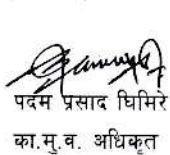 पदम प्रसाद घिमिरे
का.मु.व. अधिकृत